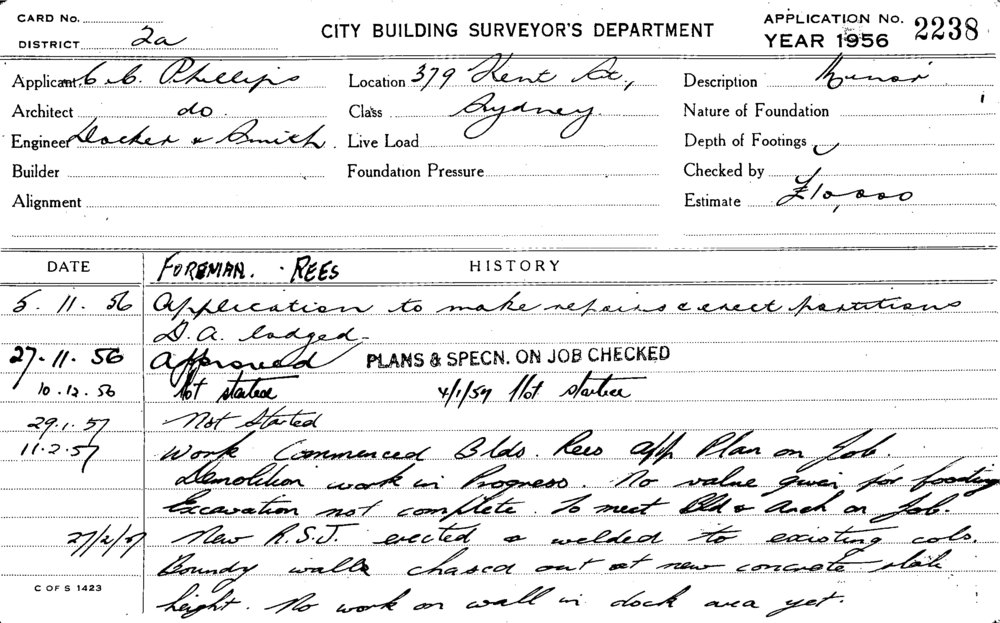 CARD No.
DISTRICT 2a
CITY BUILDING SURVEYOR'S DEPARTMENT
APPLICATION No. 2238
YEAR 1956
Applicant C. C. Phillips
Location 379 Kent St.,
Description Minor
Architect do
Class Sydney
Nature of Foundation
Engineer Docker & Smith.
Live Load
Depth of Footings
Builder
Foundation Pressure
Checked by
Alignment
Estimate £10,000
DATE
FOREMAN. REES
HISTORY
5. 11. 56 Application to make repairs & erect partitions
D.A. lodged.
27. 11. 56 Approved PLANS & SPECN. ON JOB CHECKED
10. 12. 56 Not started 4/1/57 Not started
29. 1. 57 Not Started
11. 2. 57 Work Commenced Blds. Rees app Plan on Job.
Demolition work in Progress. No value given for footing
Excavation not complete. To meet Bld & Arch on Job.
27/2/57 New R.S.J. erected & welded to existing cols.
Boundy walls chased out at new concrete slab
height. No work on wall in dock area yet.
C OF S 1423